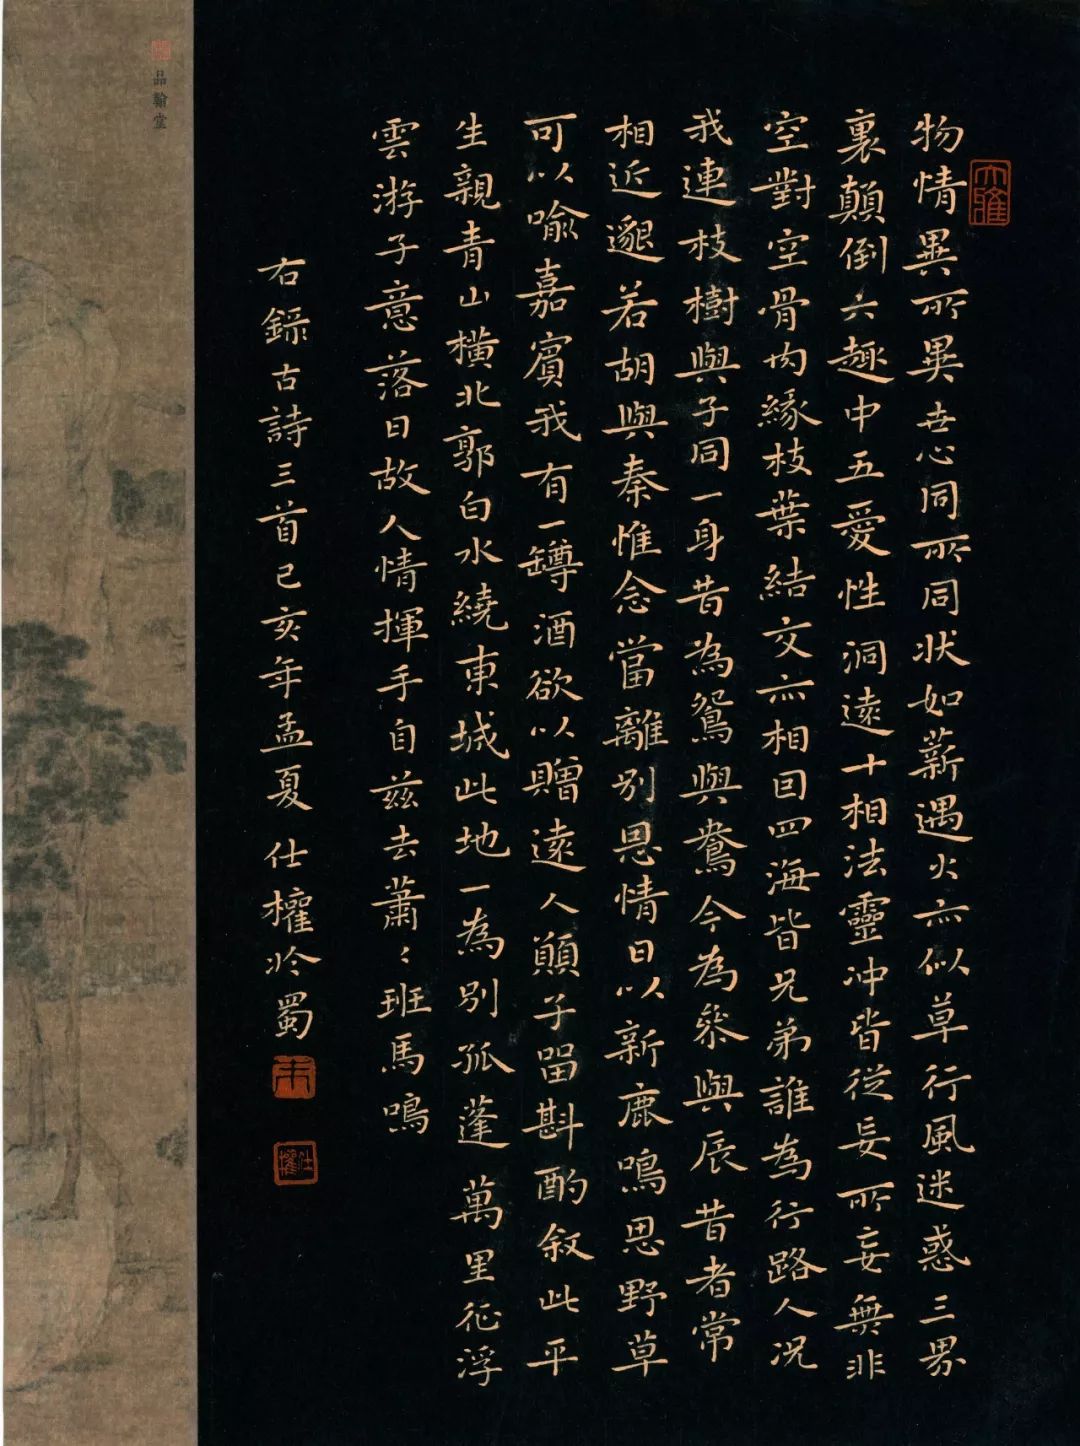 大雅
物情異所異世心同所同状如薪遇火亦似草行風迷惑三界
裏顛倒六趣中五愛性洞遠十相法靈冲皆從妄所妄無非
空對空骨肉緣枝葉結交亦相因四海皆兄弟誰為行路人况
我連枝樹與子同一身昔為鴛與鴦今為參與辰昔者常
相近邈若胡與秦惟念當離別恩情日以新鹿鳴思野草
可以喻嘉賓我有一罇酒欲以贈遠人願子留斟酌叙此平
生親青山橫北郭白水繞東城此地一為別孤蓬萬里征浮
雲游子意落日故人情揮手自兹去蕭〻班馬鳴
右錄古詩三首己亥年孟夏仕權於蜀
朱
仕權
品翰堂